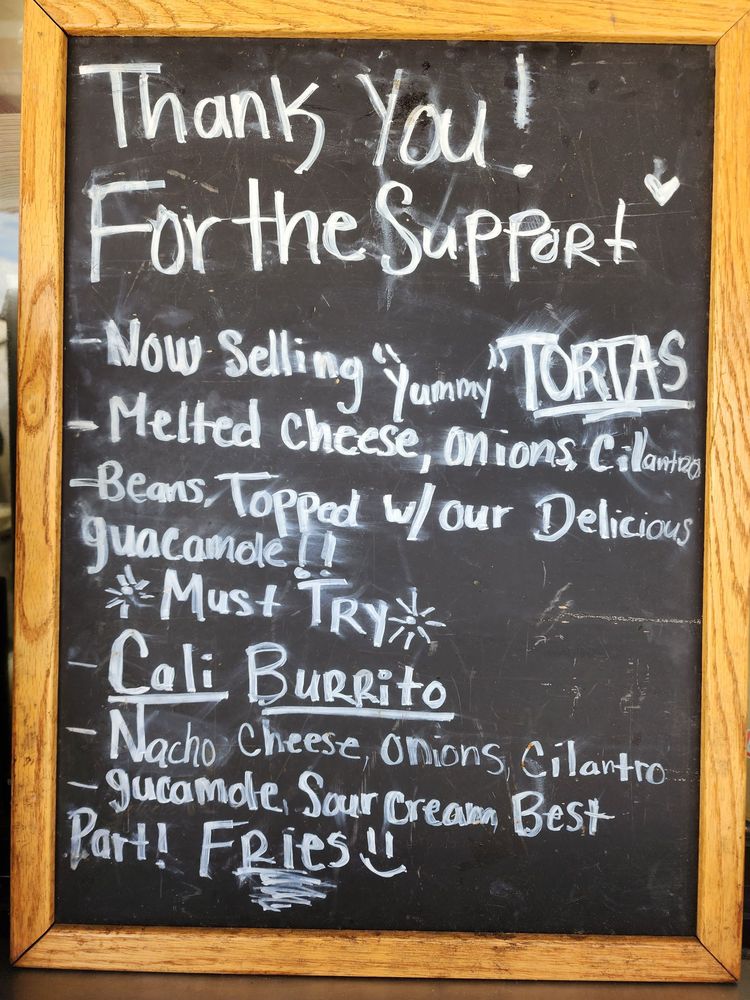 Thank You!
For the Support
- Now Selling "Yummy" TORTAS
- Melted cheese, onions, Cilantro
- Beans, Topped w/ our Delicious
guacamole!!
Must TRY
- Cali BURRito
- Nacho cheese, onions, Cilantro
- gucamole, Sour cream, Best
Part! FRies